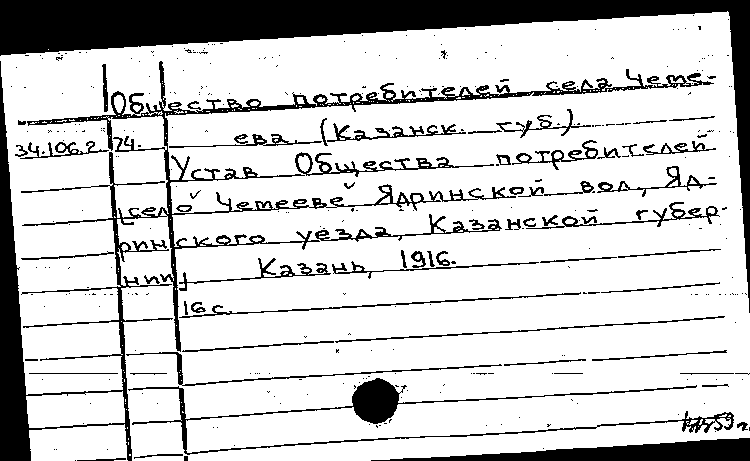 Общество потребителей села Чете-
34.106.2.74. ева. (Казанск. губ.)
Устав Общества потребителей
[село Четееве, Ядринской вол., Яд-
ринского уезда, Казанской губер-
нии] Казань, 1916.
16 с.